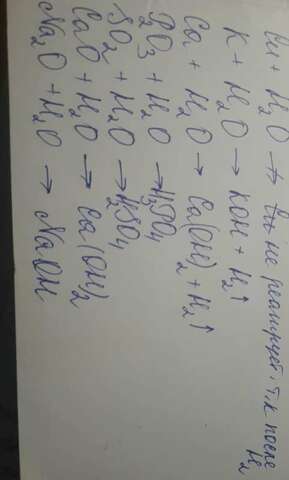 Cu + H₂O ↛ Cu не реагирует, т.к после H₂
K + H₂O → KOH + H₂↑
Ca + H₂O → Ca(OH)₂ + H₂↑
P₂O₃ + H₂O → H₃PO₄
SO₂ + H₂O → H₂SO₄
CaO + H₂O → Ca(OH)₂
Na₂O + H₂O → NaOH